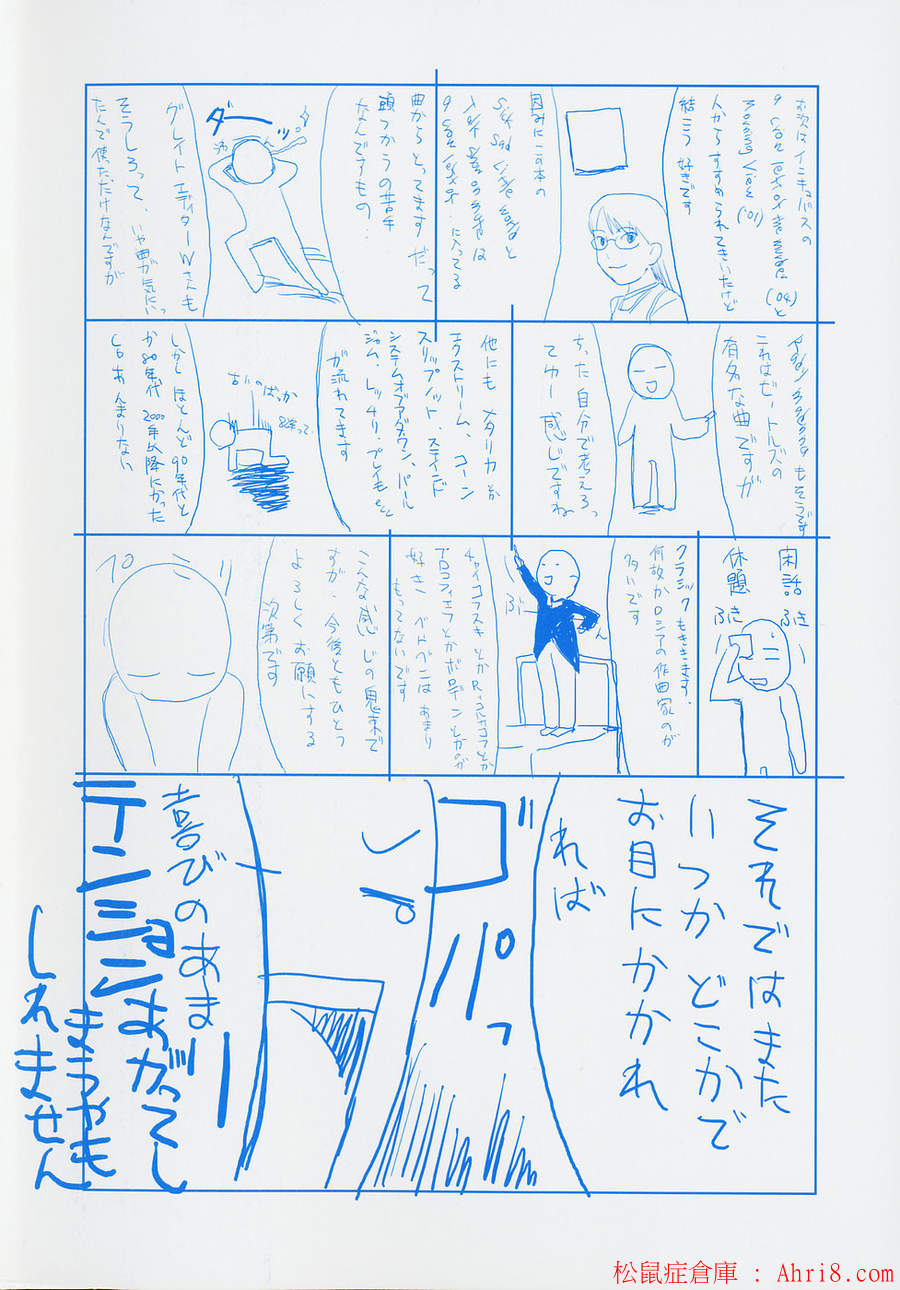 お次はインキュバスの
(04)と
('01)
人からすすめられてきいたけど
結こう好きです
因みにこの本の
と
は
に入ってる
曲からとってます だって
頭つかうの苦手
なんですもの…
ダーッ
グレイト エディターWさんも
そうしろって、いや曲が気にいっ
たんで使っただけなんですが
もそうです
これはビートルズの
有名な曲ですが
ちった自分で考えろっ
てゆー感じですね
他にも メタリカとか
エクストリーム、コーン
スリップノット、ステインド
システムオブアダウン、パール
ジャム、レッチリ、プレイモetc
が流れてます
古いのばっか
しかし ほとんど90年代と
か80年代 2000年以降にかった
CDあんまりない
閑話
休題
ふき
ふき
クラシックもききます。
何故かロシアの作曲家のが
多いです
チャイコフスキとかR・コルサコフとか
プロコフィエフとかボロディンとかのが
好き ベトベンは あまり
もってないです
こんな感じの鬼束で
すが、今後ともひとつ
よろしくお願いする
次第です
それではまた
いつか どこかで
お目にかかれ
れば
ゴパっ
喜びのあまり
テンションあがってし
まうかも
しれません
松鼠症倉庫 : Ahri8.com